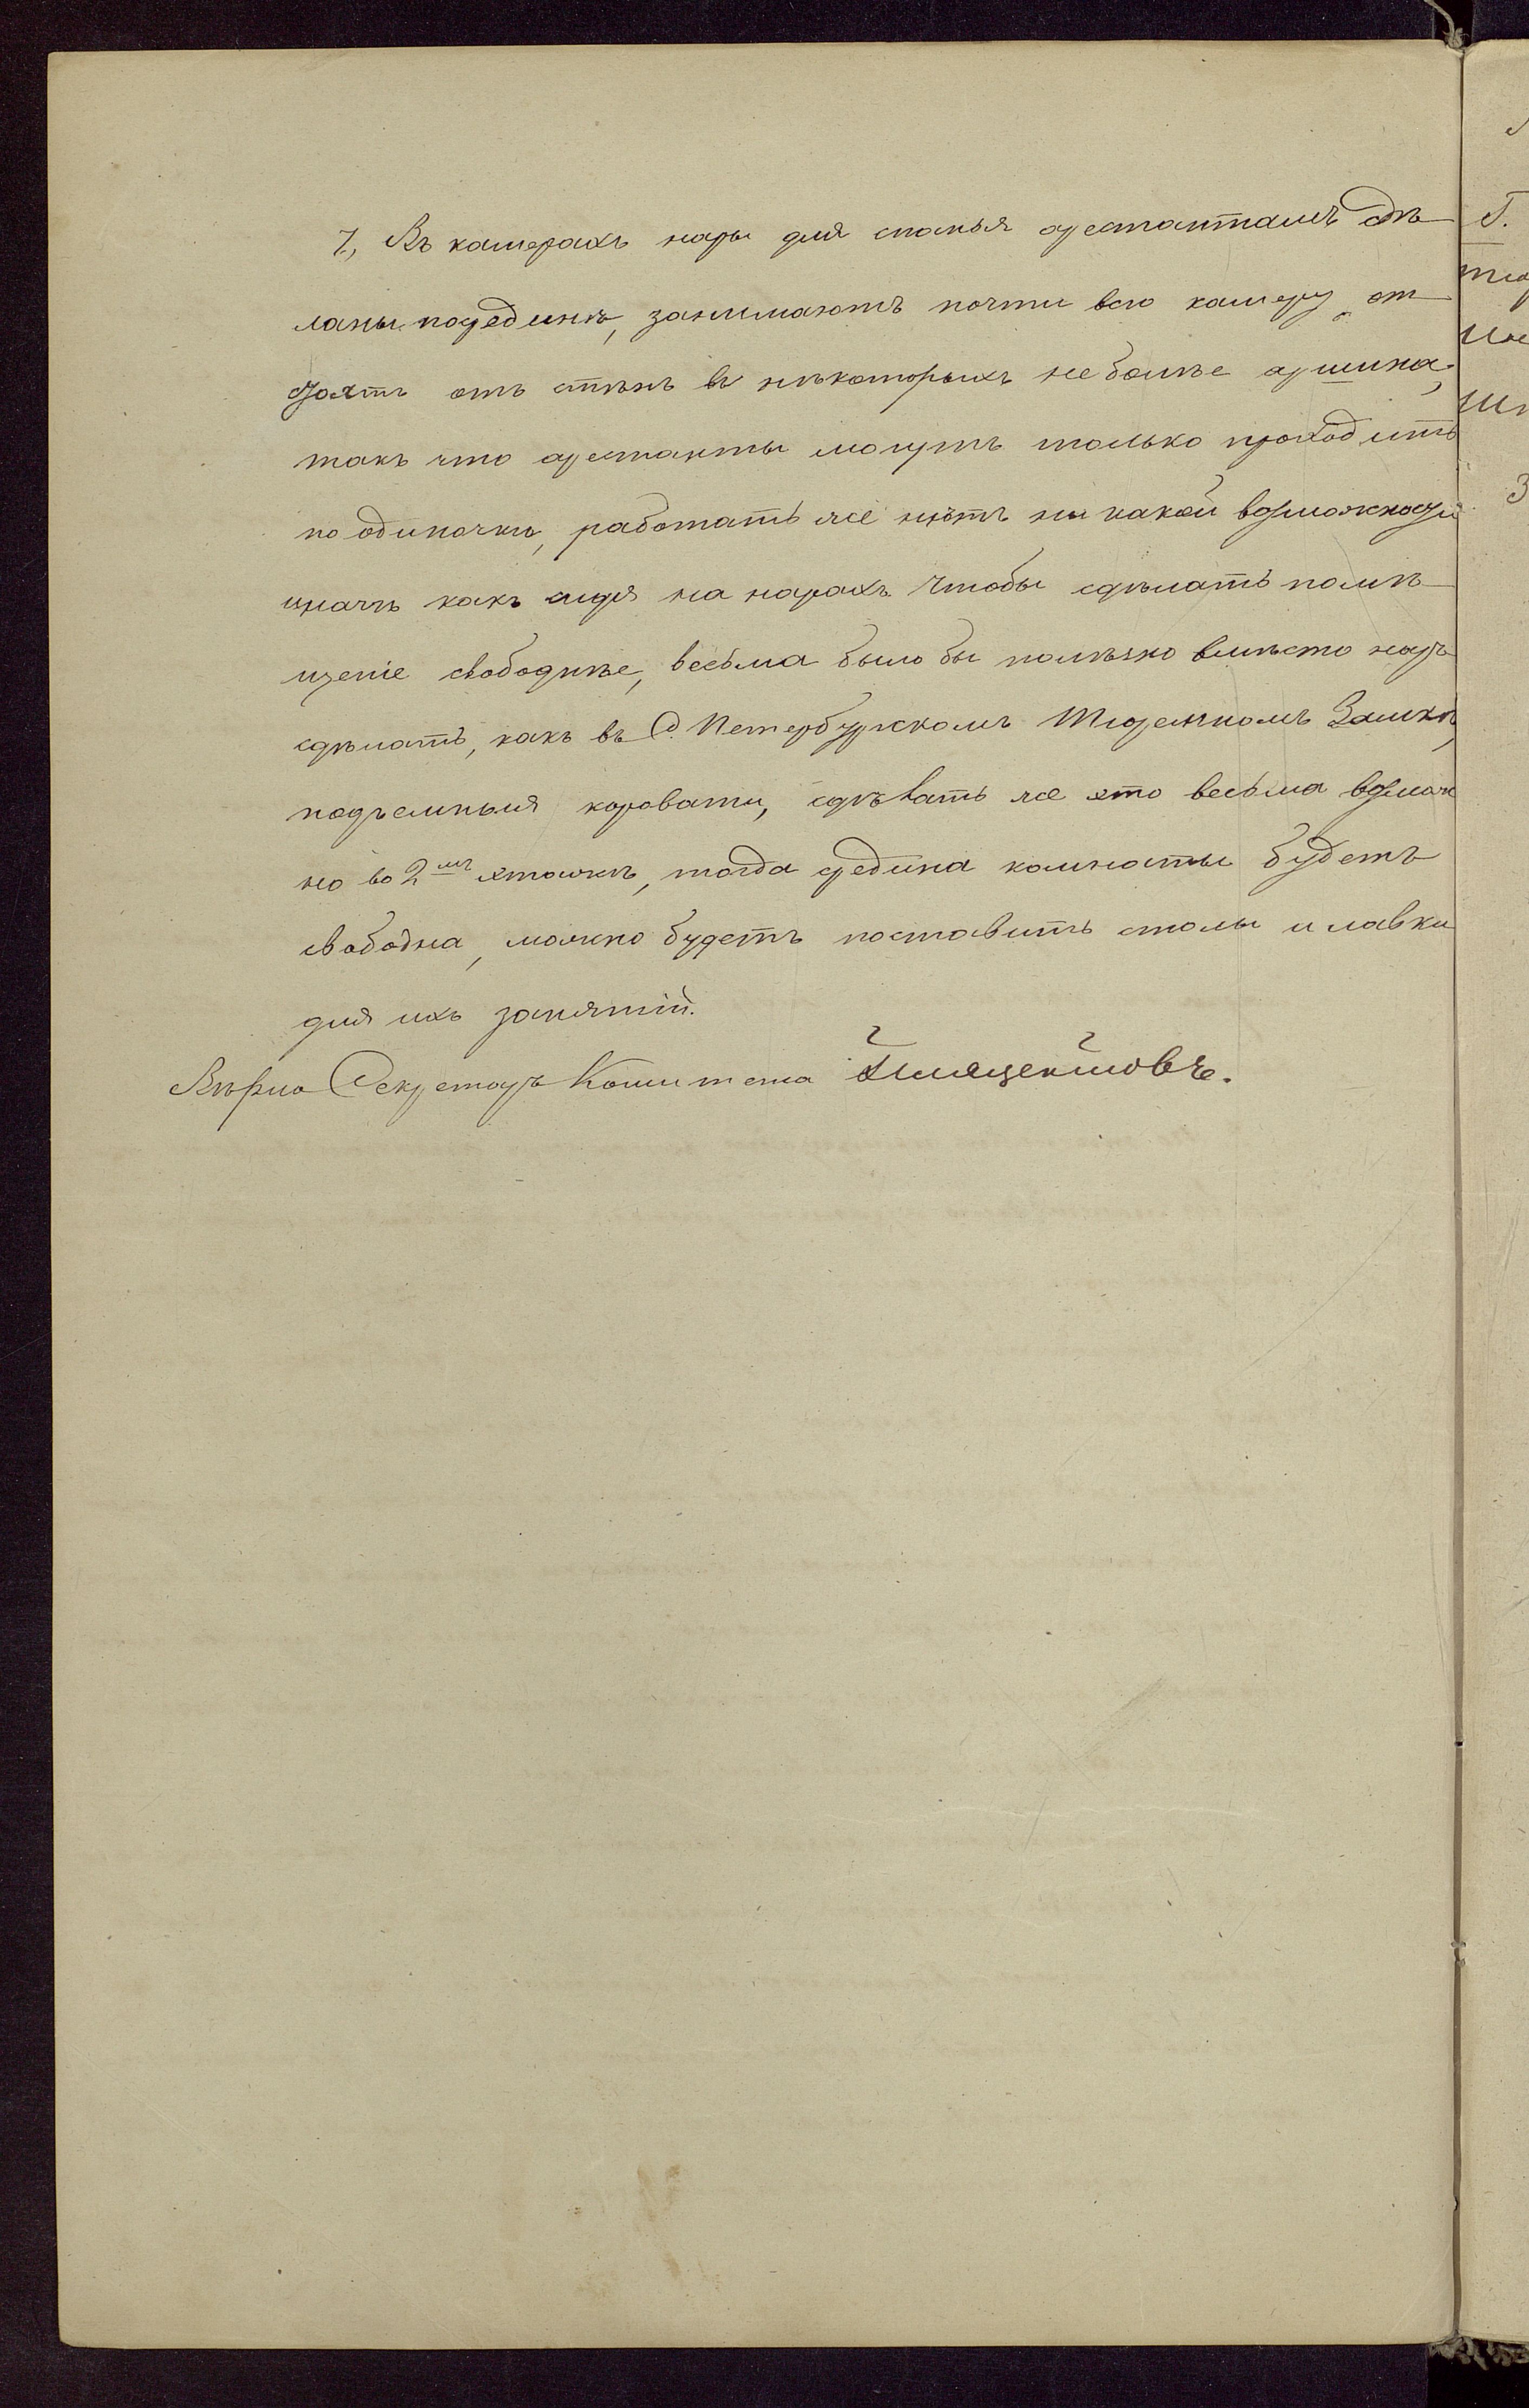 7, Въ камерахъ нары для спанья арестантамъ сдѣ-
ланы посрединѣ, занимаютъ почти всю камеру, от-
стоятъ отъ стѣнъ въ нѣкоторыхъ не болѣе аршина,
такъ что арестанты могутъ только проходить
по одиночкѣ, работать же нѣтъ ни какой возможности
иначе какъ сидя на нарахъ. Чтобы сдѣлать помѣ-
щеніе свободнѣе, весьма было бы полезно вмѣсто наръ
сдѣлать, какъ въ С. Петербургскомъ Тюремномъ Замкѣ,
подъемныя кровати, сдѣлать же это весьма возмож
но во 2мъ этажѣ, тогда средина комнаты будетъ
свободна, можно будетъ поставить столы и лавки
для ихъ занятій.
Вѣрно Секретарь Комитета